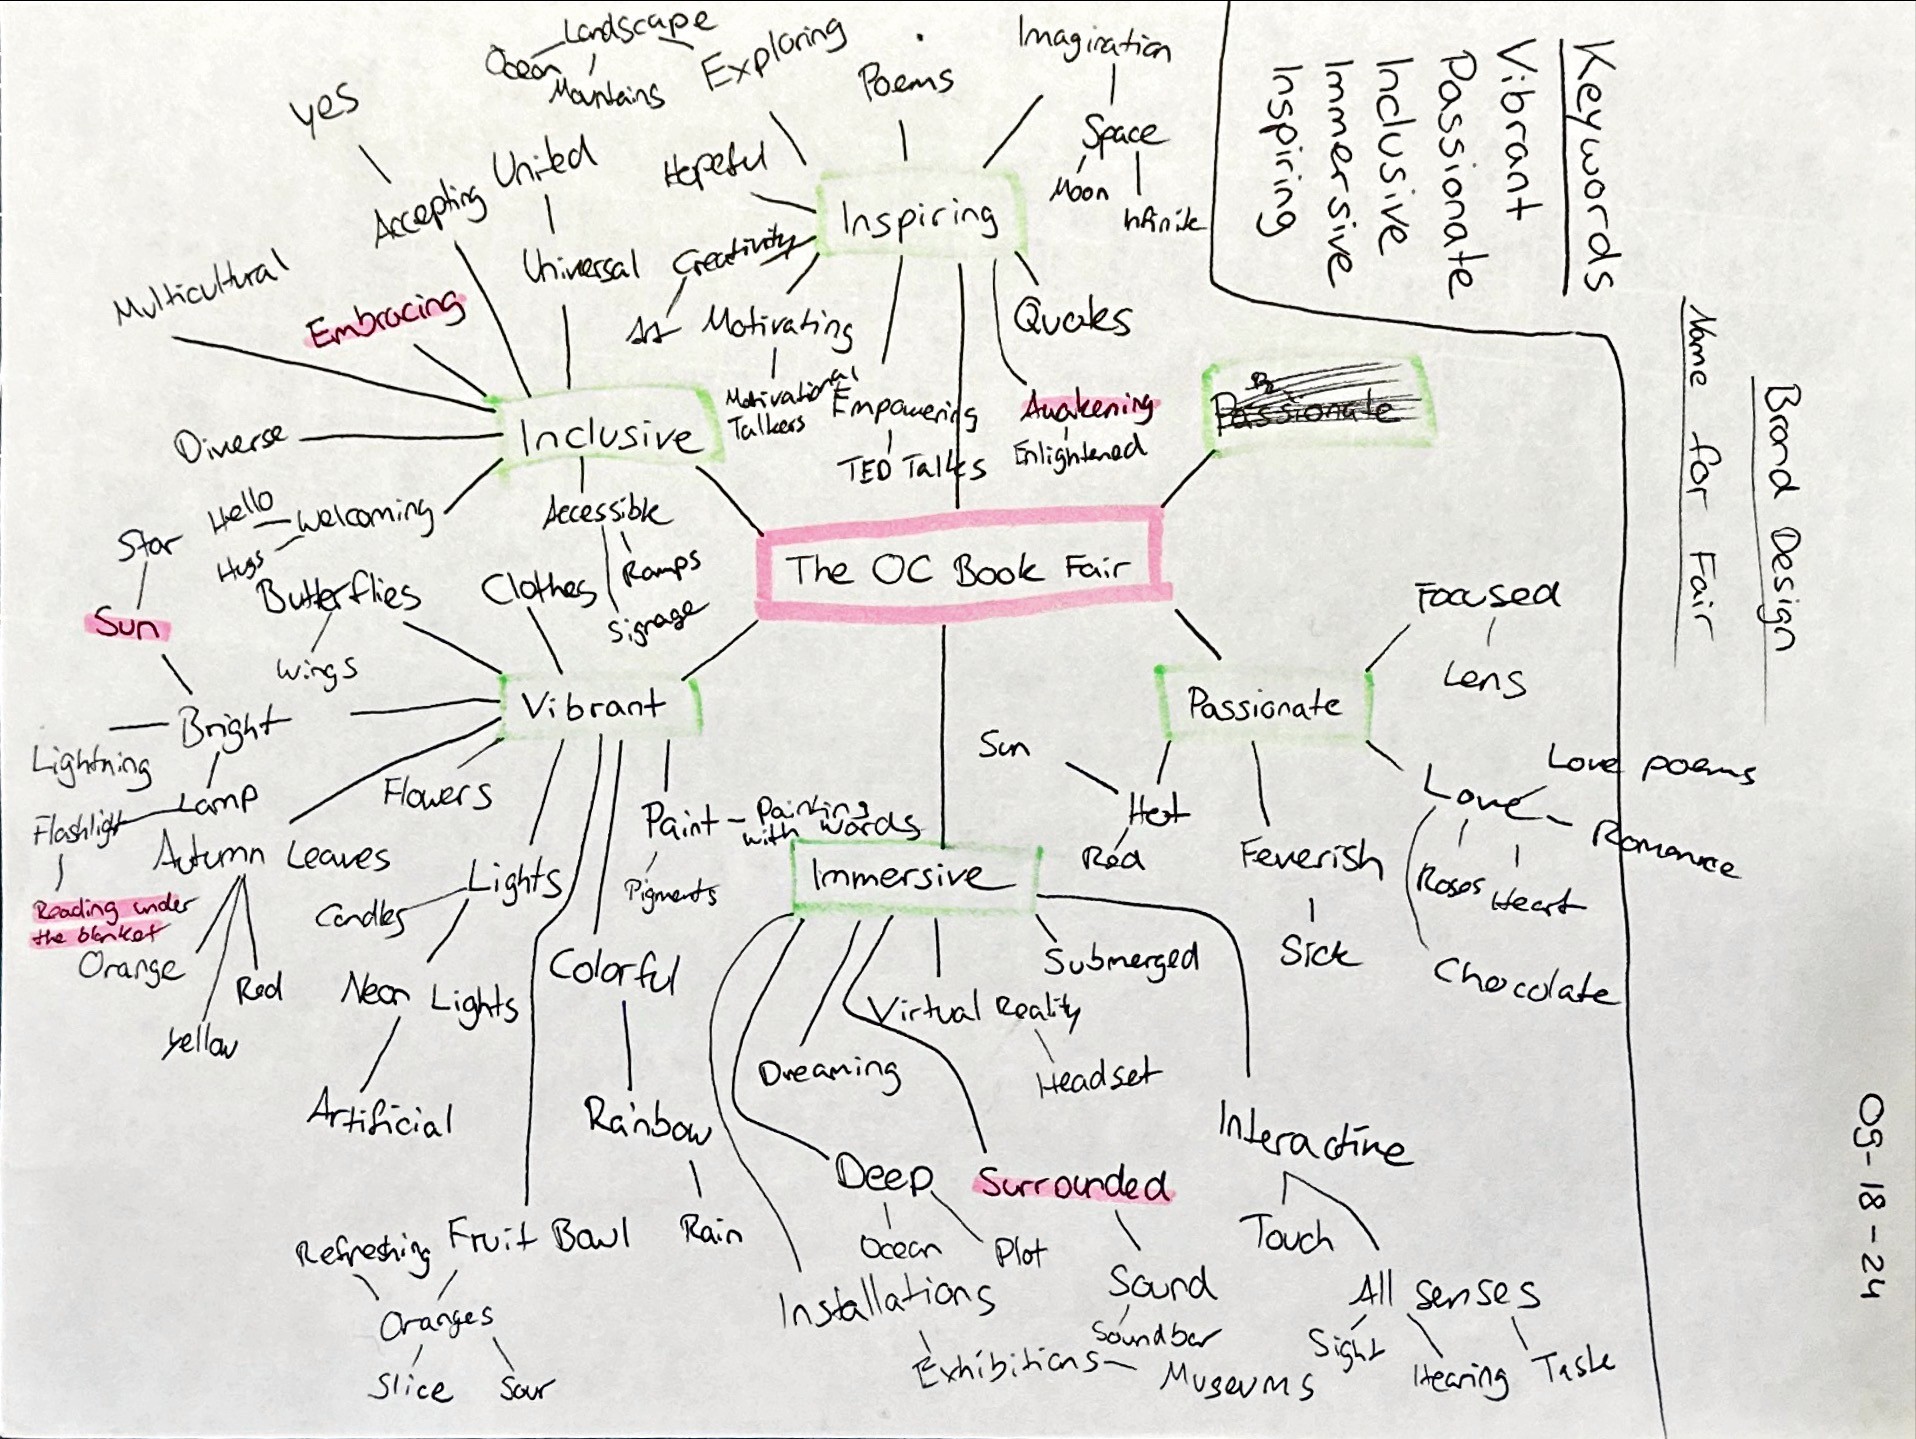 Brand Design
Name for Fair
09-18-24
Keywords
Vibrant
Passionate
Inclusive
Immersive
Inspiring
The OC Book Fair
Inspiring
Hopeful
Exploring
Landscape
Ocean
Mountains
Poems
Imagination
Space
Moon
Infinite
Creativity
Art
Motivating
Motivational
Talkers
Empowering
TED Talks
Quotes
Awakening
Enlightened
Passionate
Inclusive
Universal
United
Accepting
yes
Embracing
Multicultural
Diverse
Welcoming
Hello
Hugs
Accessible
Ramps
Signage
Vibrant
Clothes
Butterflies
Wings
Bright
Sun
Star
Lightning
Lamp
Flashlight
Reading under
the blanket
Autumn Leaves
Orange
Yellow
Red
Flowers
Lights
Candles
Neon Lights
Artificial
Fruit Bowl
Refreshing
Oranges
Slice
Sour
Colorful
Rainbow
Rain
Paint - Painting
with words
Pigments
Immersive
Installations
Exhibitions - Museums
Deep
Ocean
Plot
Dreaming
Surrounded
Sound
Soundbar
Virtual Reality
Headset
Submerged
Interactive
Touch
All senses
Sight
Hearing
Taste
Passionate
Focused
Lens
Hot
Sun
Red
Feverish
Sick
Love
Love poems
Romance
Roses
Heart
Chocolate